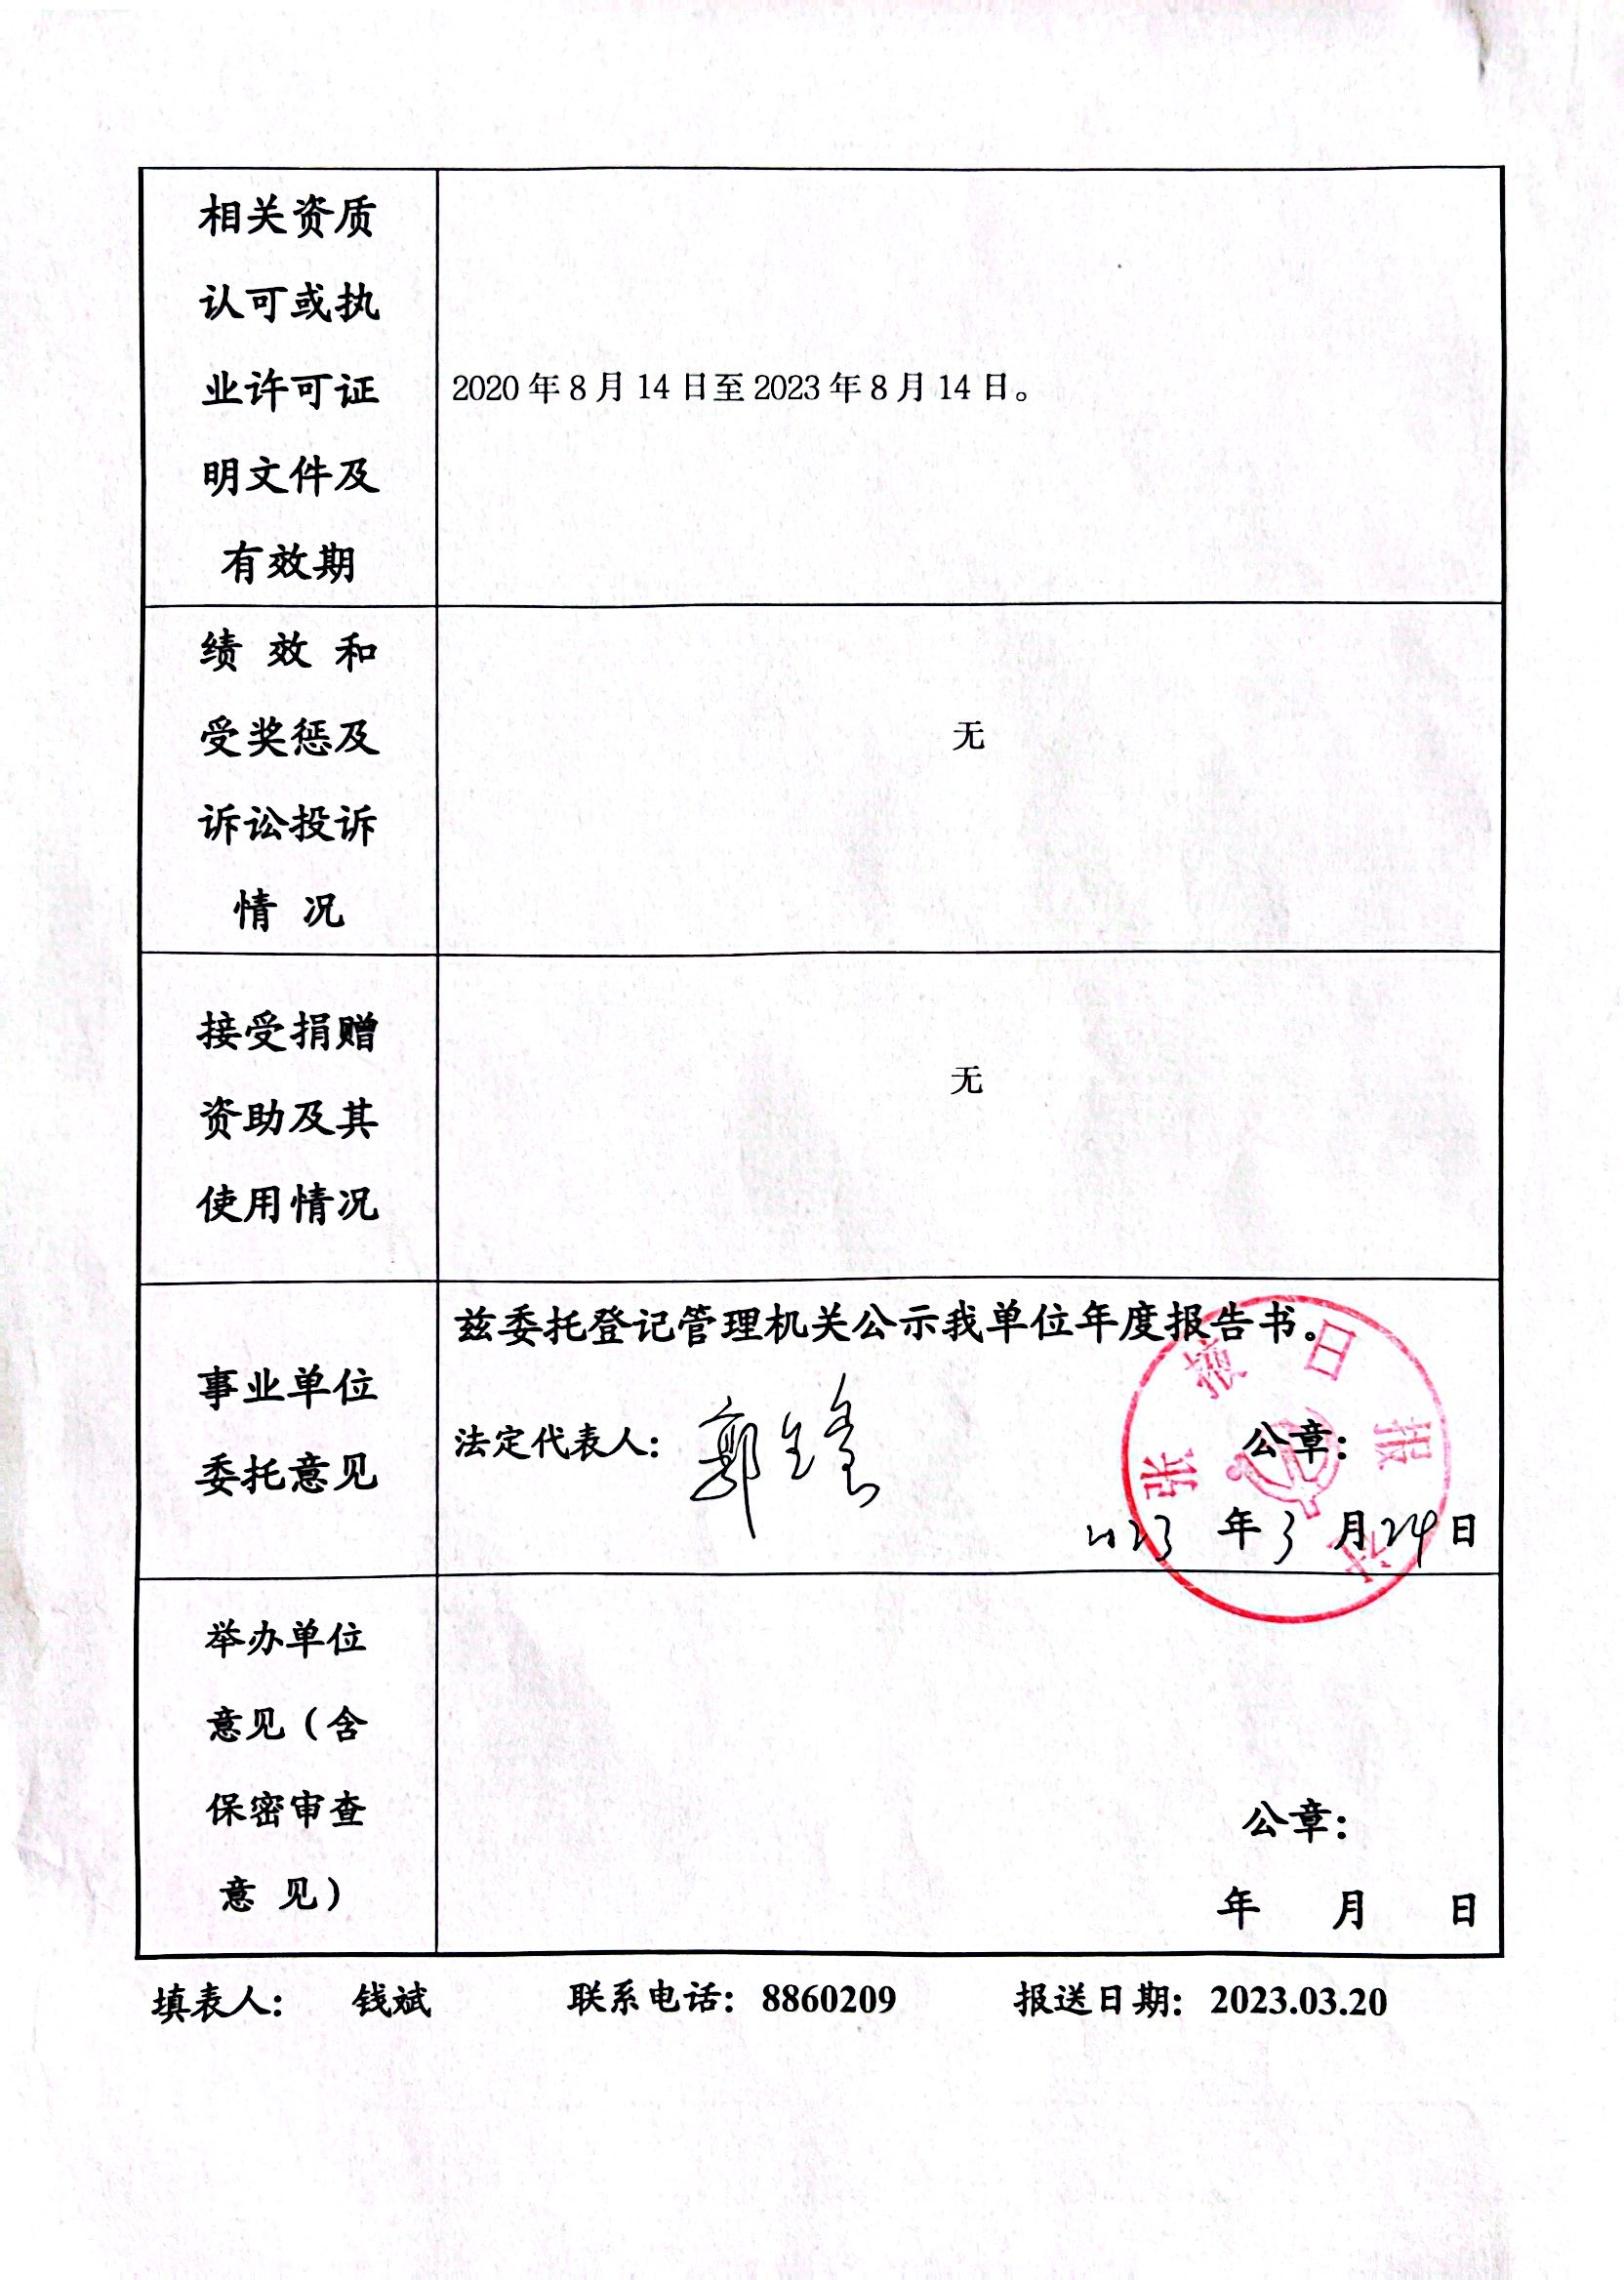 相关资质
认可或执
业许可证
明文件及
有效期
2020年8月14日至2023年8月14日。
绩 效 和
受奖惩及
诉讼投诉
情 况
无
接受捐赠
资助及其
使用情况
无
事业单位
委托意见
兹委托登记管理机关公示我单位年度报告书。
法定代表人: 郭 公章:
2023 年3 月24日
张掖日报社
举办单位
意见(含
保密审查
意 见)
公章:
年 月 日
填表人: 钱斌 联系电话: 8860209 报送日期: 2023.03.20